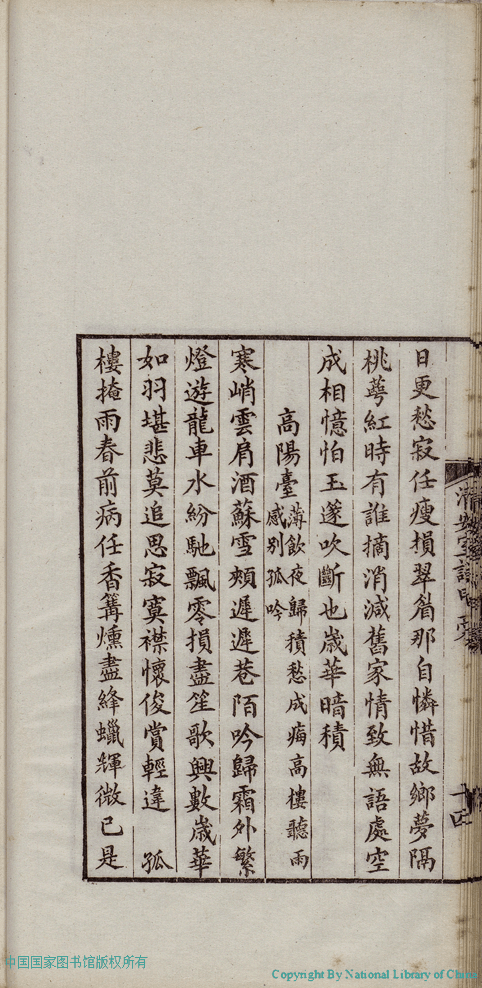 日更愁寂任瘦損翠眉那自憐惜故鄉夢隔
桃萼紅時有誰摘消減舊家情致無語處空
成相憶怕玉篴吹斷也歲華暗積
高陽臺
薄飲夜歸積愁成痗高樓聽雨
感別孤吟
寒峭雲肩酒蘇雪頰遲遲巷陌吟歸霜外繁
燈遊龍車水紛馳飄零損盡笙歌興數歲華
如羽堪悲莫追思寂寞襟懷俊賞輕違 孤
樓掩雨春前病任香篝燻盡絳蠟輝微已是
十四
中国国家图书馆版权所有
Copyright By National Library of China